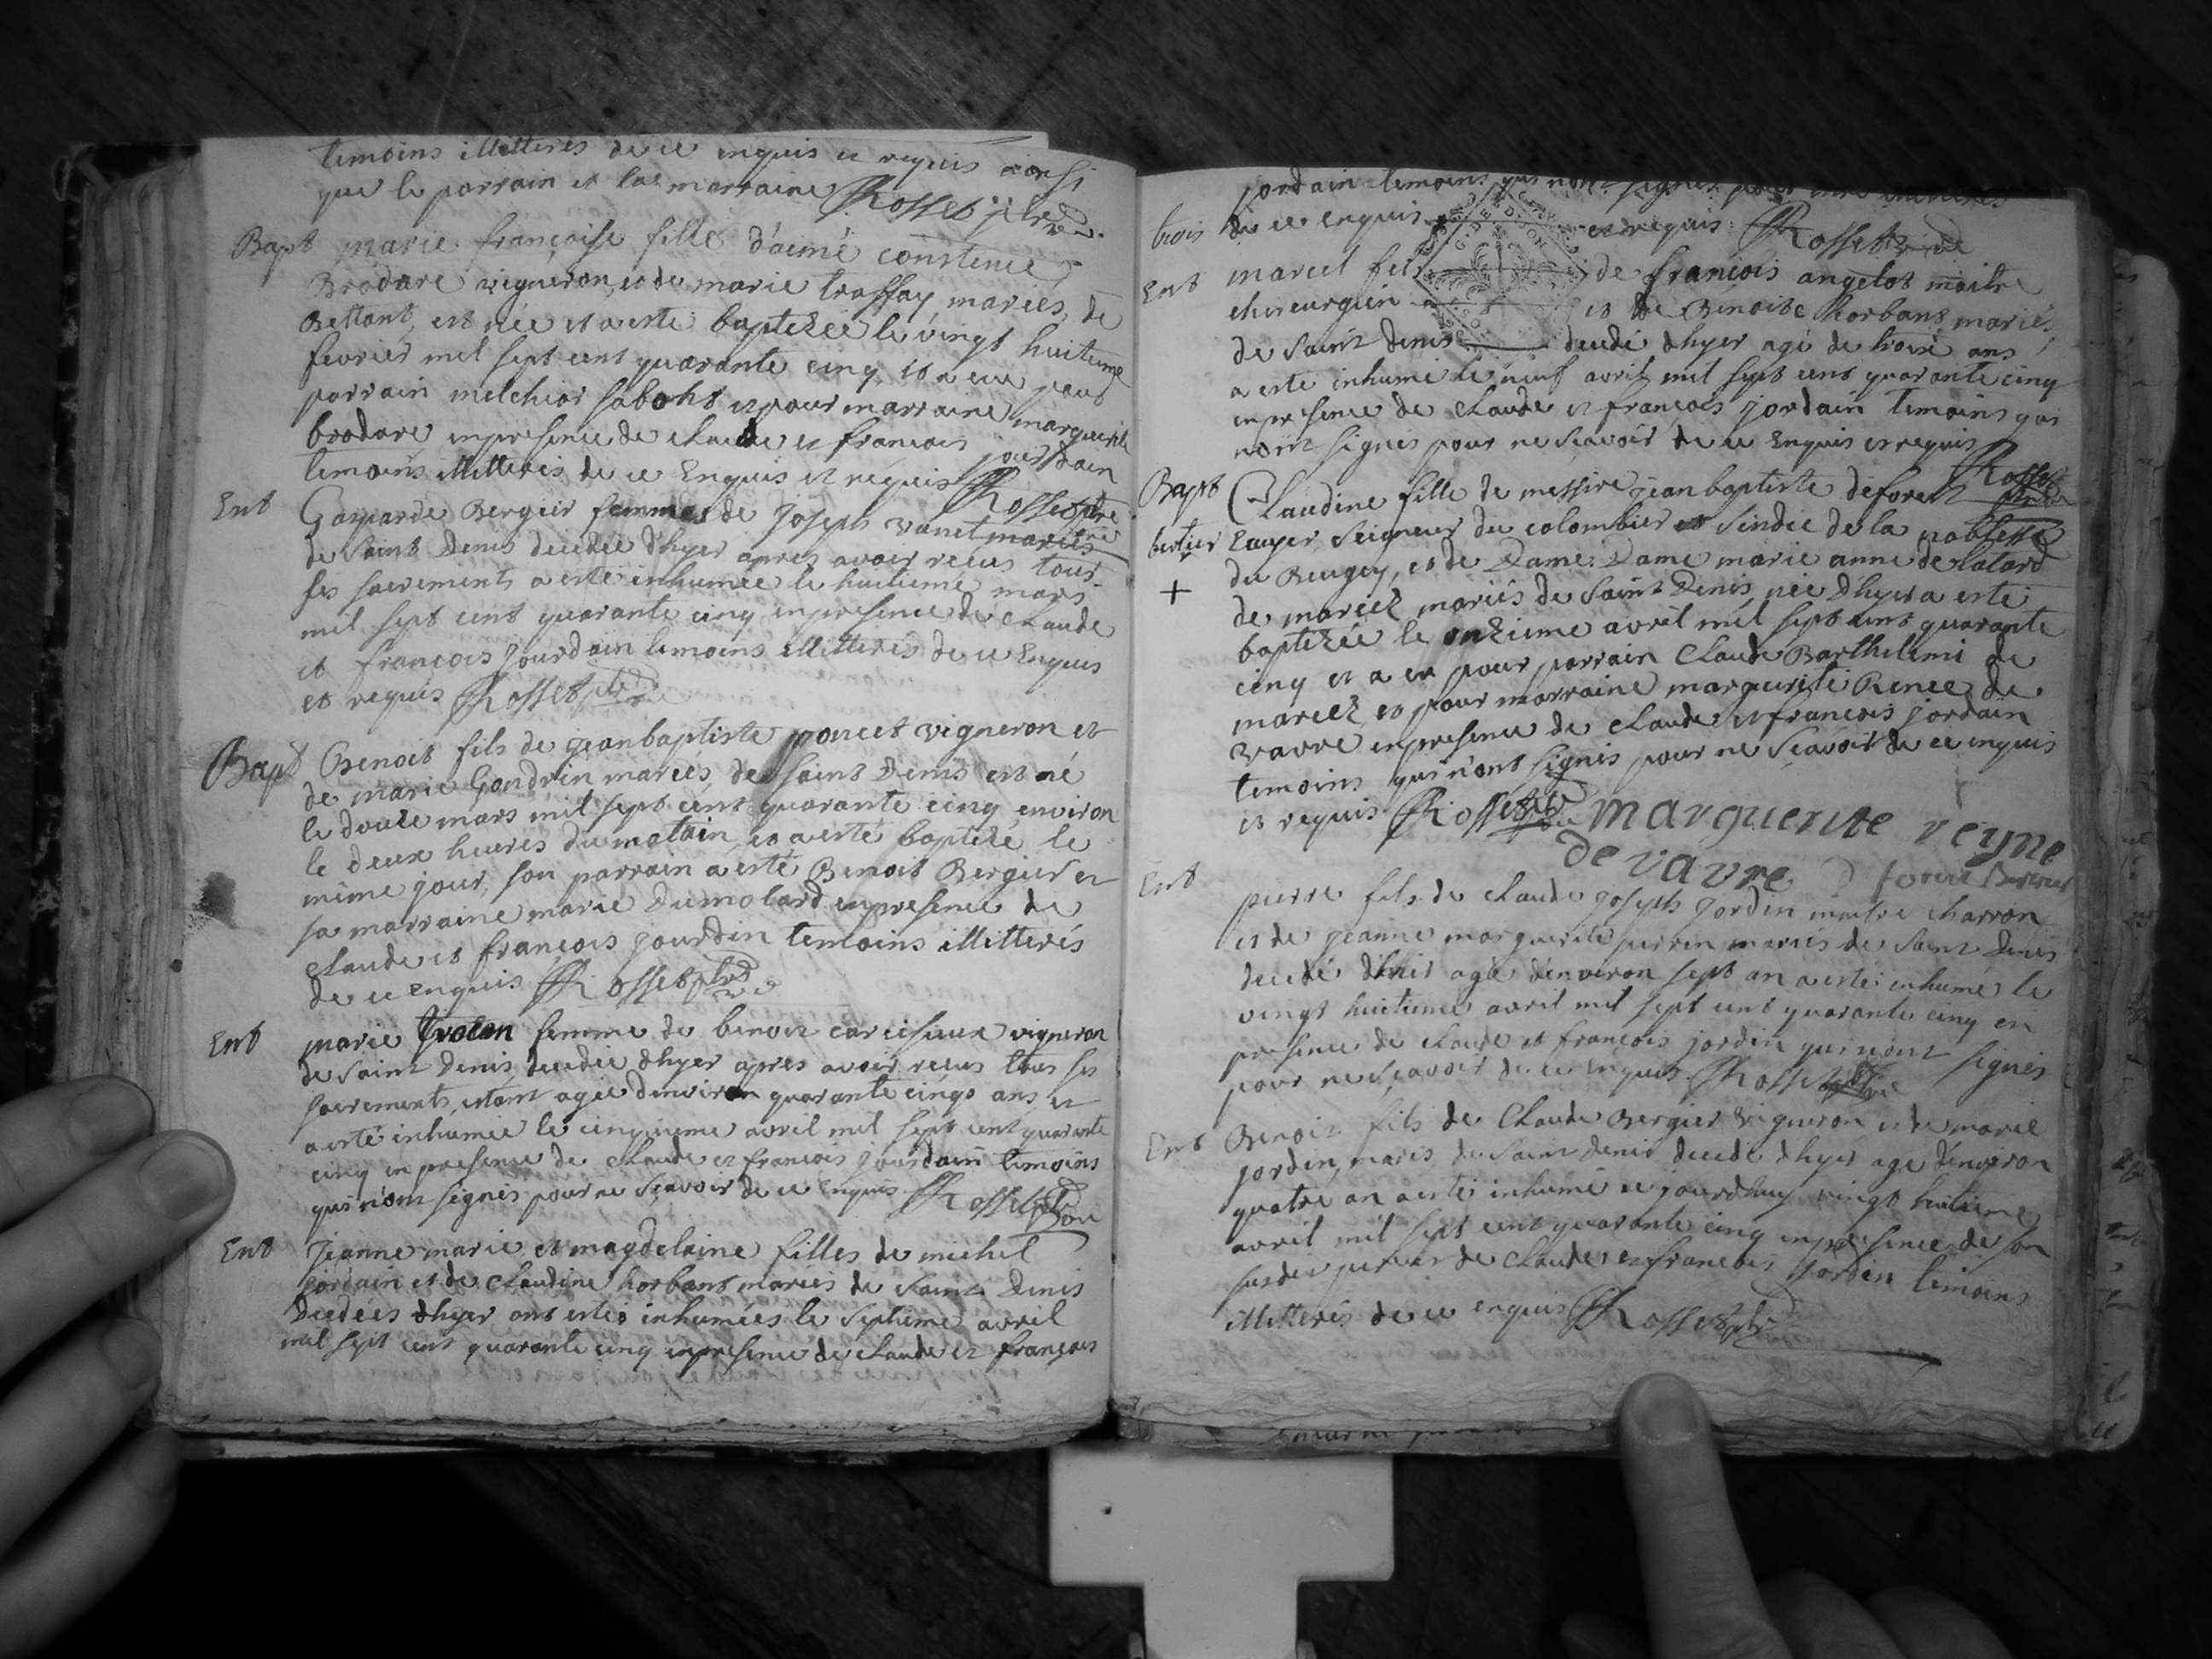 temoins illitterés de ce enquis et requis ainsi
que le parrain et la marraine Rosset ptre
Bapt marie françoise fille d'aimé constence
Brodare vigneron, et de marie traffay mariés, de
Bettant, est née et a esté baptezée le vingt huitieme
fevrier mil sept cent quarante cinq, et a eu pour
parrain melchior et pour marraine marguerite
brodare en presence de claude et francois jourdain
temoins illitterés de ce Enquis et requis Rosset ptre
Ent Gasparde Bergier femme de Joseph vanet mariés
de Saint Denis decedée d'hyer apres avoir recus tous
ses sacrements a esté inhumée le huitieme mars
mil sept cent quarante cinq en presence de Claude
et francois Jourdain temoins illitterés de ce Enquis
et requis Rosset ptre
Bapt Benoit fils de jean baptiste poncet vigneron et
de marie Gondrin mariés, de Saint Denis est né
le douze mars mil sept cent quarante cinq environ
le deux heures du matain, et a esté baptizé le
même jour, son parrain a esté Benoit Bergier et
sa marraine marie Dumolard en presence de
Claude et françois jourdin temoins illitterés
de ce enquis Rosset ptre
Ent marie femme de benoit vigneron
de Saint Denis, decedée d'hyer apres avoir recus tous ses
sacrements, estant agée d'environ quarante cinqs ans, et
a esté inhumée le cinquieme avril mil sept cent quarante
cinq en presence de Claude et francois jourdain temoins
qui n'ont signés pour ne Scavoir de ce enquis Rosset
Ent Jeanne marie et magdelaine filles de michel
jordain et de Claudine horbant mariés de Saint Denis
Decedées d'hyer ont estés inhumées le Septieme avril
mil sept cent quarante cinq en presence de Claude et françois
jordain temoins qui n'ont signés pour
de ce enquis et requis Rosset
Ent marcel fils de françois angelot maitre
chireurgien et de Benoite horbant mariés
de Saint Denis decedé d'hyer agé de trois ans
a esté inhumé le neuf avril mil sept cent quarante cinq
en presence de Claude et françois jordain temoins qui
n'ont signés pour ne scavoir de ce Enquis et requis Rosset
Bapt Claudine fille de messire jean baptiste deforest
Ecuyer, Seigneur du colombier et Sindic de la noblesse
du Beugey, et de Dame: Dame marie anne de
de marcez mariés de Saint Denis, née d'hyer a esté
baptezée le onzieme avril mil sept cent quarante
cinq et a eu pour parrain Claude Barthelemi de
marcez, et pour marraine marguerite Renee de
vavre en presence de claude et francois jordain
temoins qui n'ont signés pour ne Scavoir de ce enquis
et requis Rosset marguerite reyne
de vavre
Ent pierre fils de Claude joseph Jordin maitre charron
et de jeanne marguerite perrin mariés de Saint Denis
decedé d'hier agé d'environ sept an a esté inhumé le
vingt huitieme avril mil sept cent quarante cinq en
presence de Claude et françois jordin qui n'ont signés
pour ne Scavoir de ce enquis Rosset
Ent Benoit fils de Claude Bergier Vigneron et de marie
jordin, mariés de Saint Denis decedé d'hyer agé d'environ
quatre an a esté inhumé ce jourd'huy vingt huitieme
avril mil sept cent quarante cinq en presence de son
de Claude et francois Jordin temoins
illitterés de ce enquis Rosset ptre